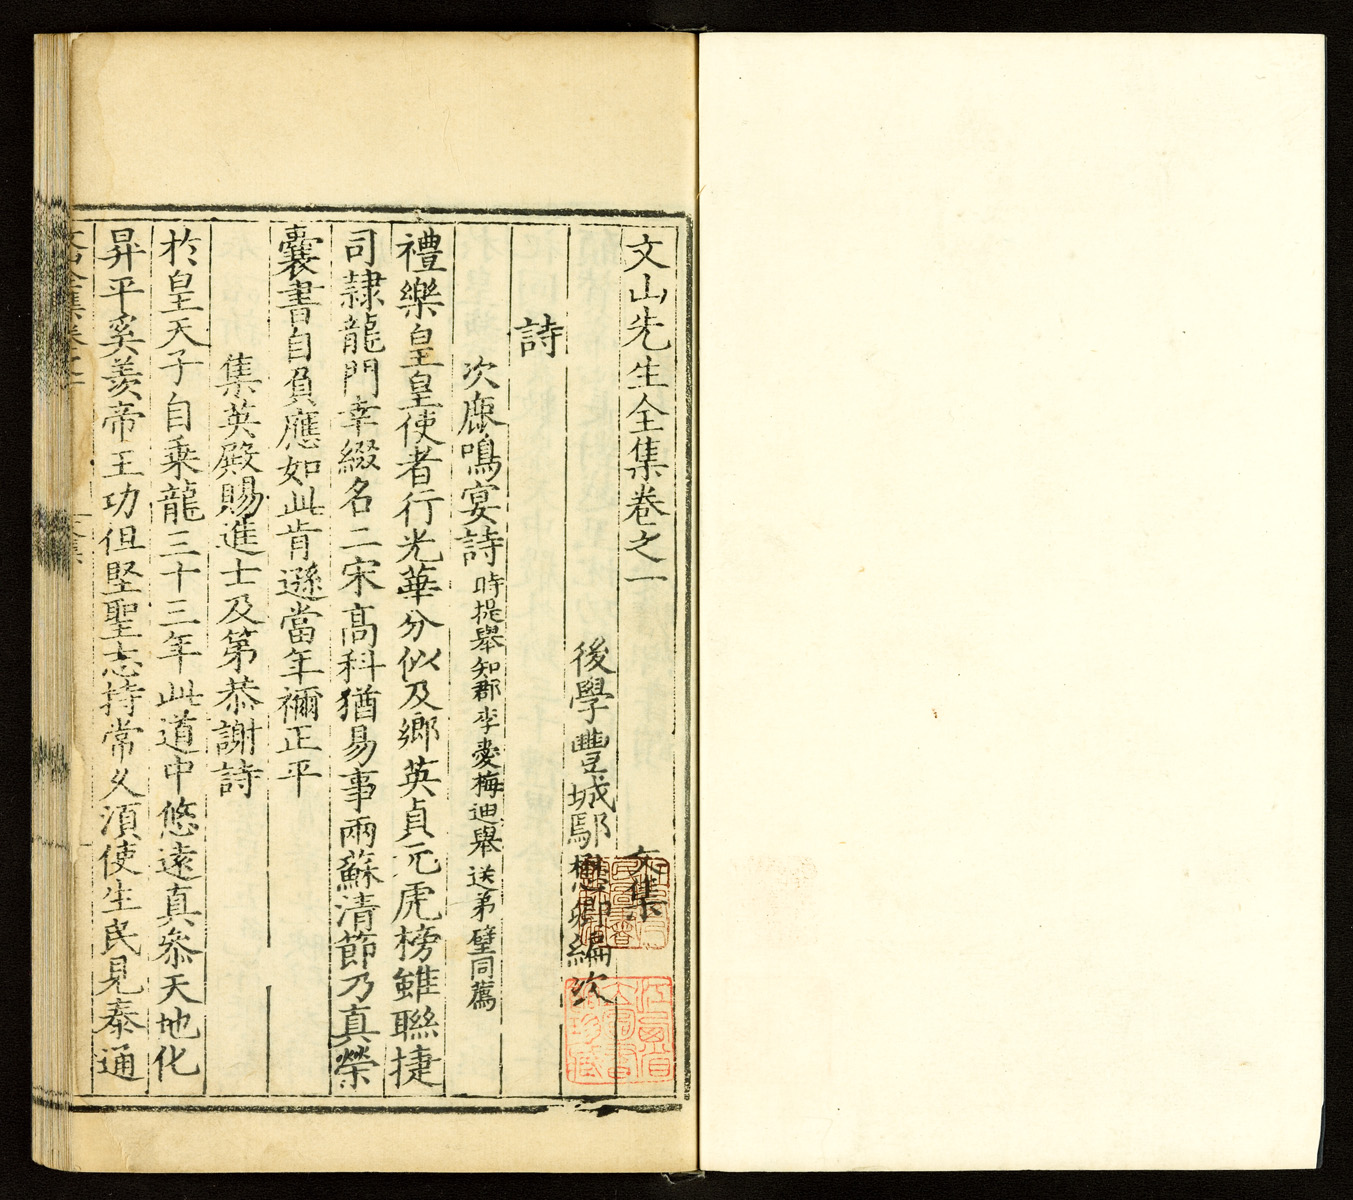 文山先生全集卷之一　文集
後學豐城鄢懋卿編次
詩
次鹿鳴宴詩時提舉知郡李愛梅迪舉送弟璧同薦
禮樂皇皇使者行光華分似及鄉英貞元虎榜雖聯捷
司隸龍門幸綴名二宋高科猶易事兩蘇清節乃真榮
囊書自負應如此肯遜當年禰正平
集英殿賜進士及第恭謝詩
於皇天子自乘龍三十三年此道中悠遠真叅天地化
昇平奚羡帝王功但堅聖志持常乆須使生民見泰通
文山全集卷之一
文集
江蘇省
立圖書
館珍藏